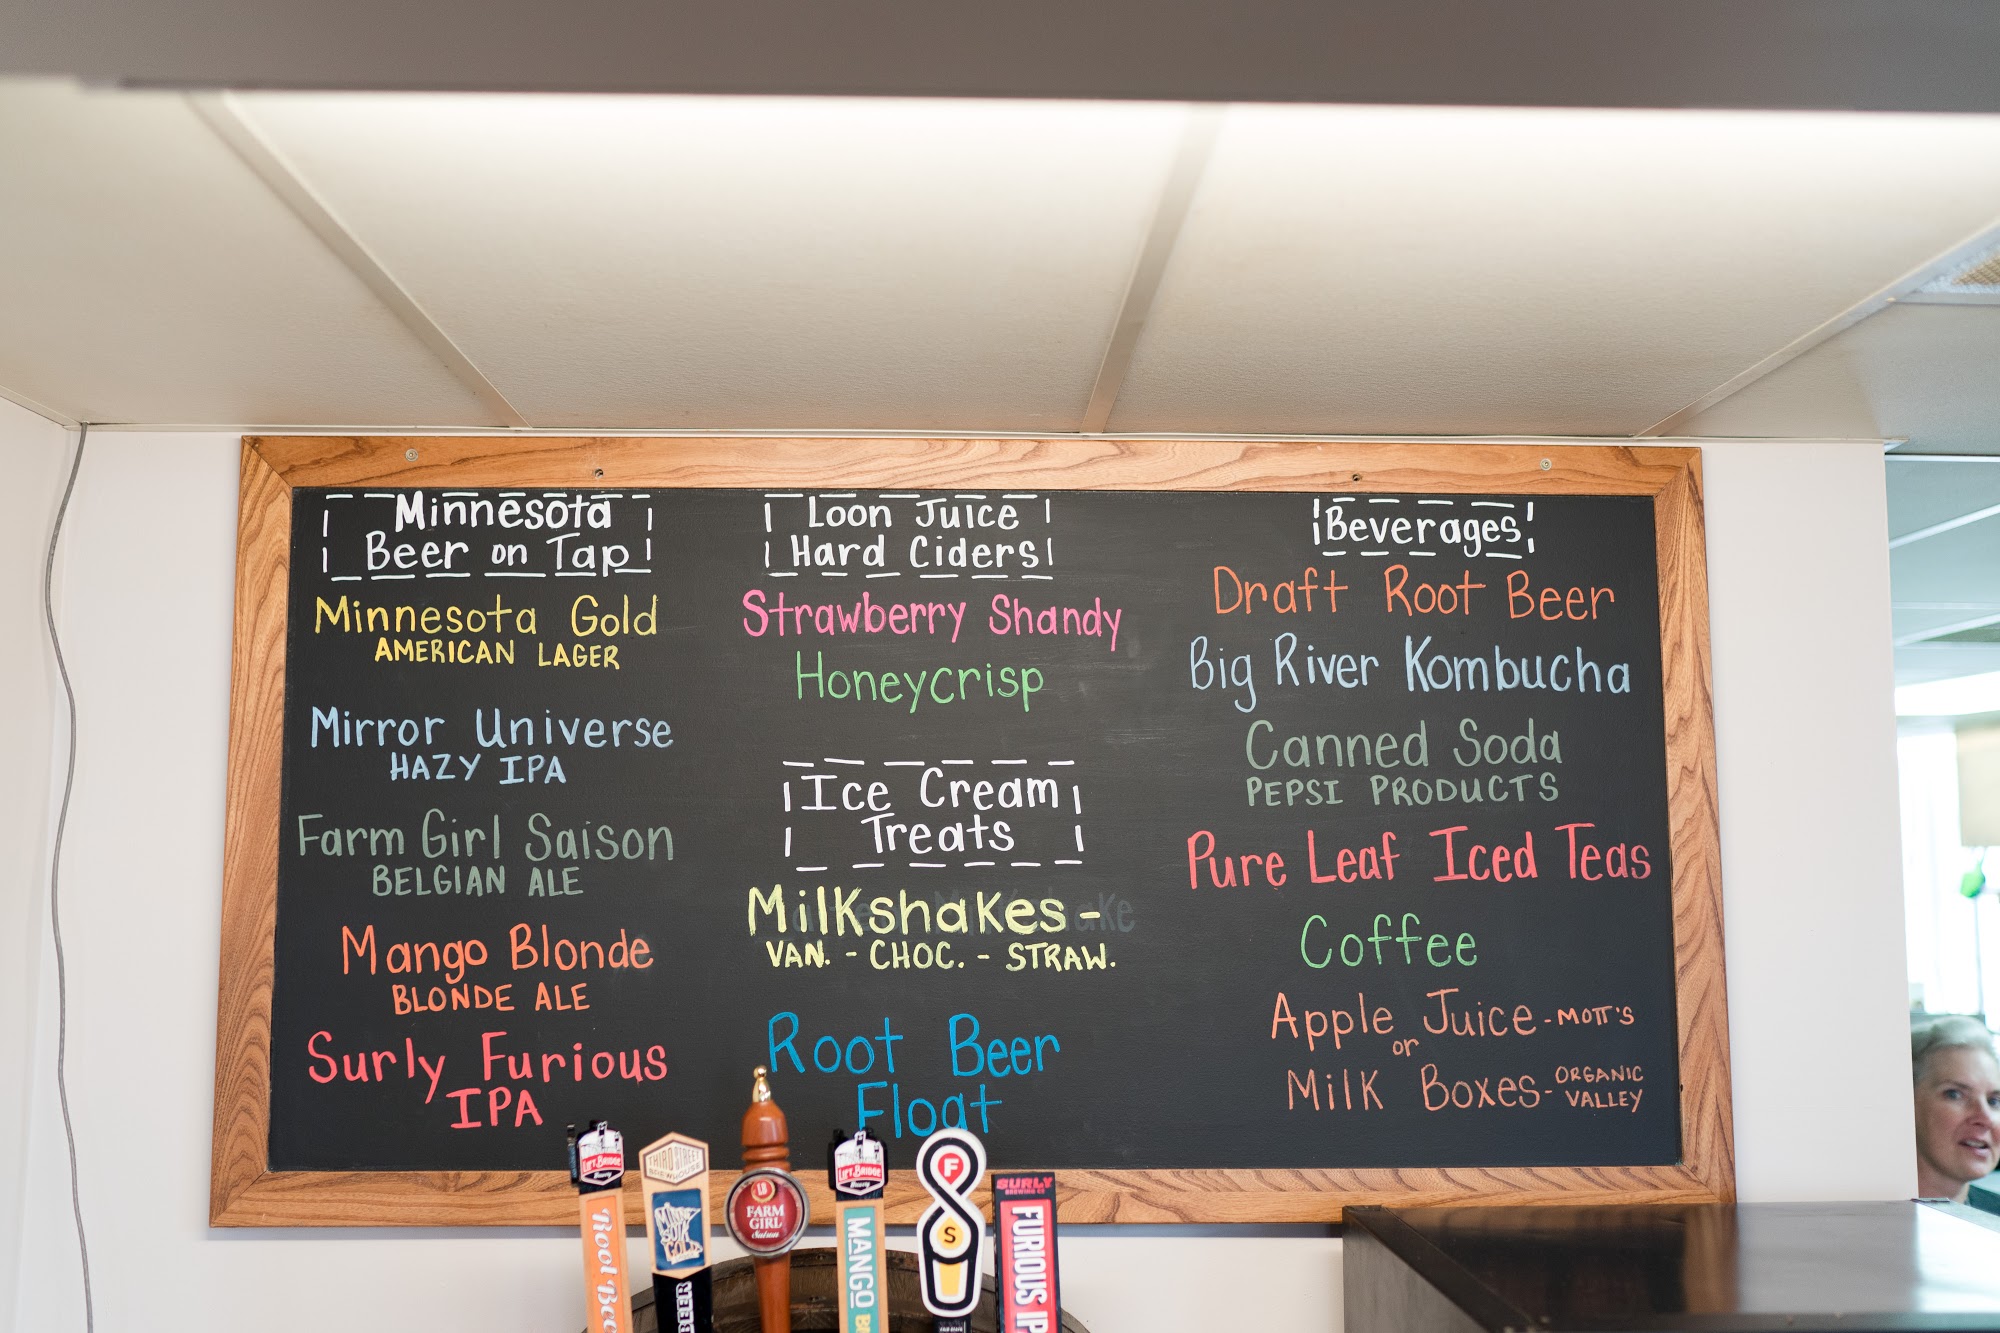 Minnesota
Beer on Tap
Minnesota Gold
AMERICAN LAGER
Mirror Universe
HAZY IPA
Farm Girl Saison
BELGIAN ALE
Mango Blonde
BLONDE ALE
Surly Furious
IPA
Loon Juice
Hard Ciders
Strawberry Shandy
Honeycrisp
Ice Cream
Treats
Milkshakes -
VAN. - CHOC. - STRAW.
Root Beer
Float
Beverages
Draft Root Beer
Big River Kombucha
Canned Soda
PEPSI PRODUCTS
Pure Leaf Iced Teas
Coffee
Apple Juice - MOTT'S
or
Milk Boxes - ORGANIC
VALLEY
LIFT BRIDGE
Brewery
Root Bee
THIRD STREET
BREWHOUSE
MINNE
SOTA
GOLD
BEER
LB
FARM
GIRL
Saison
LIFT BRIDGE
Brewery
MANGO B
F
S
SURLY
BREWING CO.
FURIOUS IP